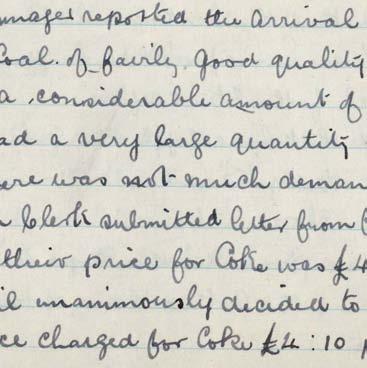 anager reported the arrival
Coal. of fairly good quality
a considerable amount of
ad a very large quantity
ere was not much deman
Clerk submitted letter from
their price for Coke was £4
il unanimously decided to
ce charged for Coke £4:10